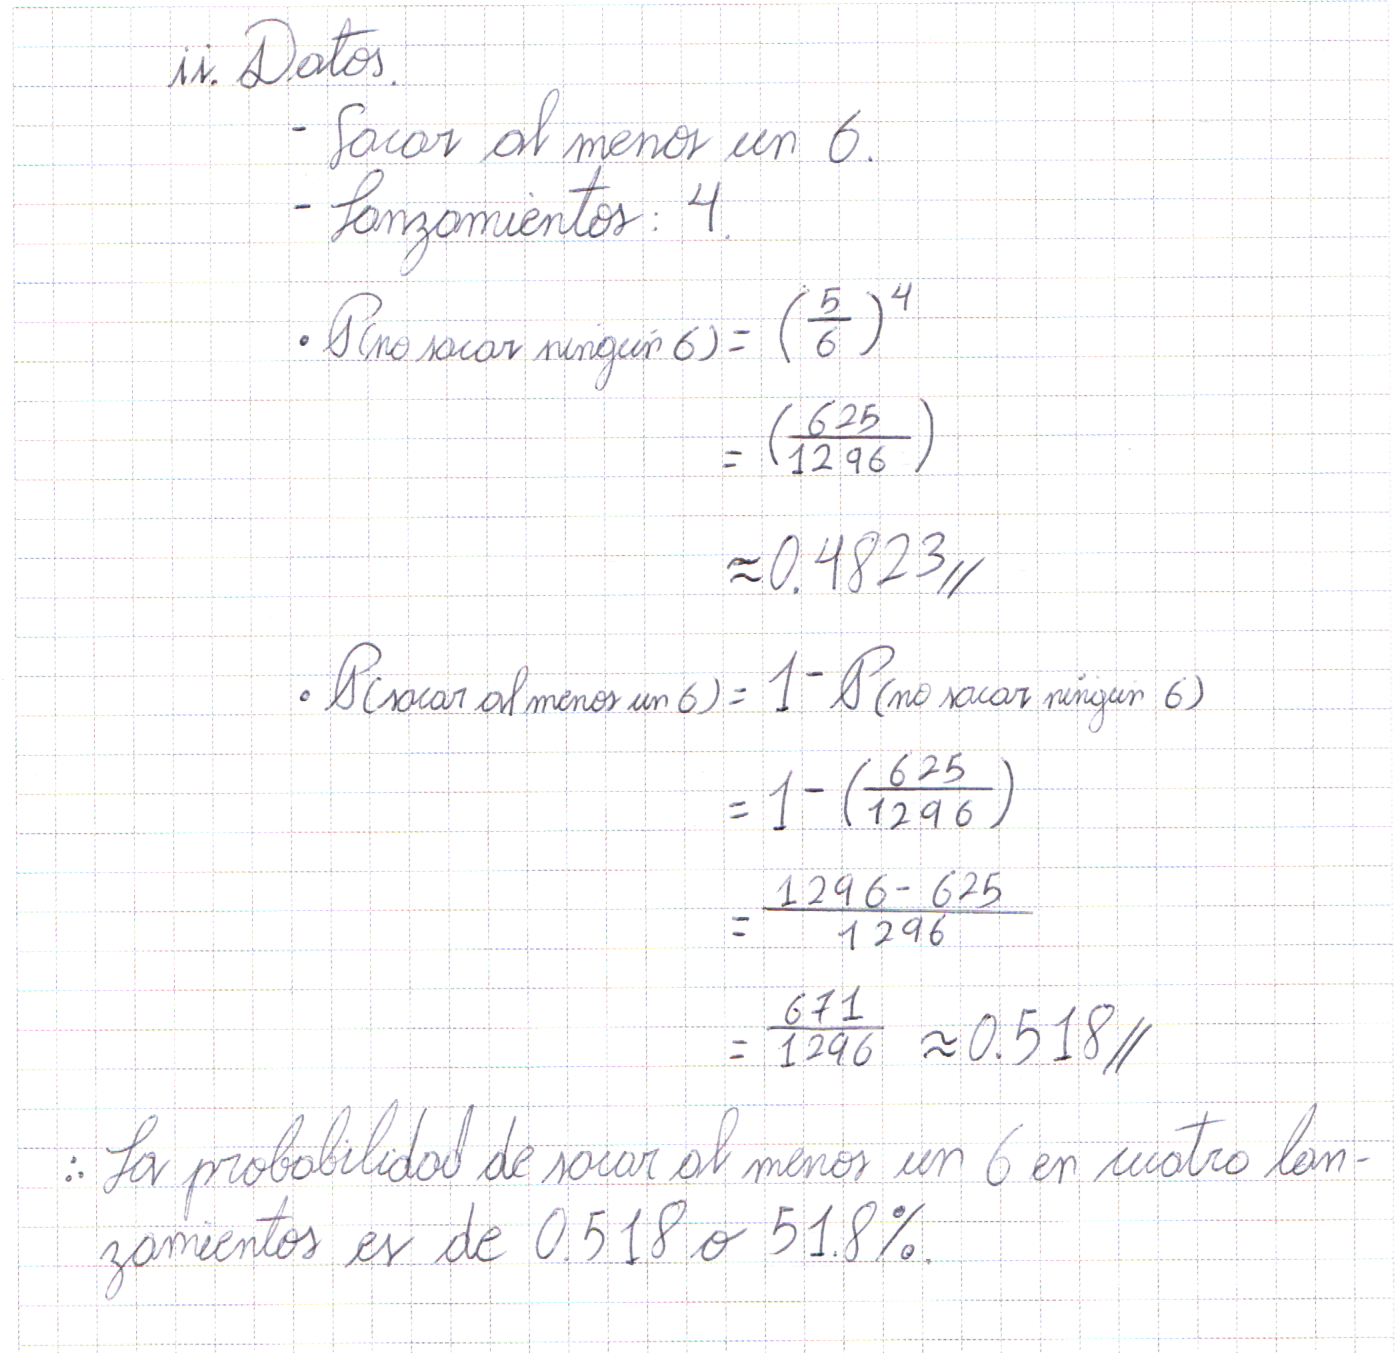 ii. Datos.
- Sacar al menos un 6.
- Lanzamientos: 4.
• P(no sacar ningún 6) = (5/6)^4
= (625/1296)
≈ 0.4823//
• P(sacar al menos un 6) = 1 - P(no sacar ningún 6)
= 1 - (625/1296)
= 1296 - 625/1296
= 671/1296 ≈ 0.518//
∴ La probabilidad de sacar al menos un 6 en cuatro lan-
zamientos es de 0.518 o 51.8%.